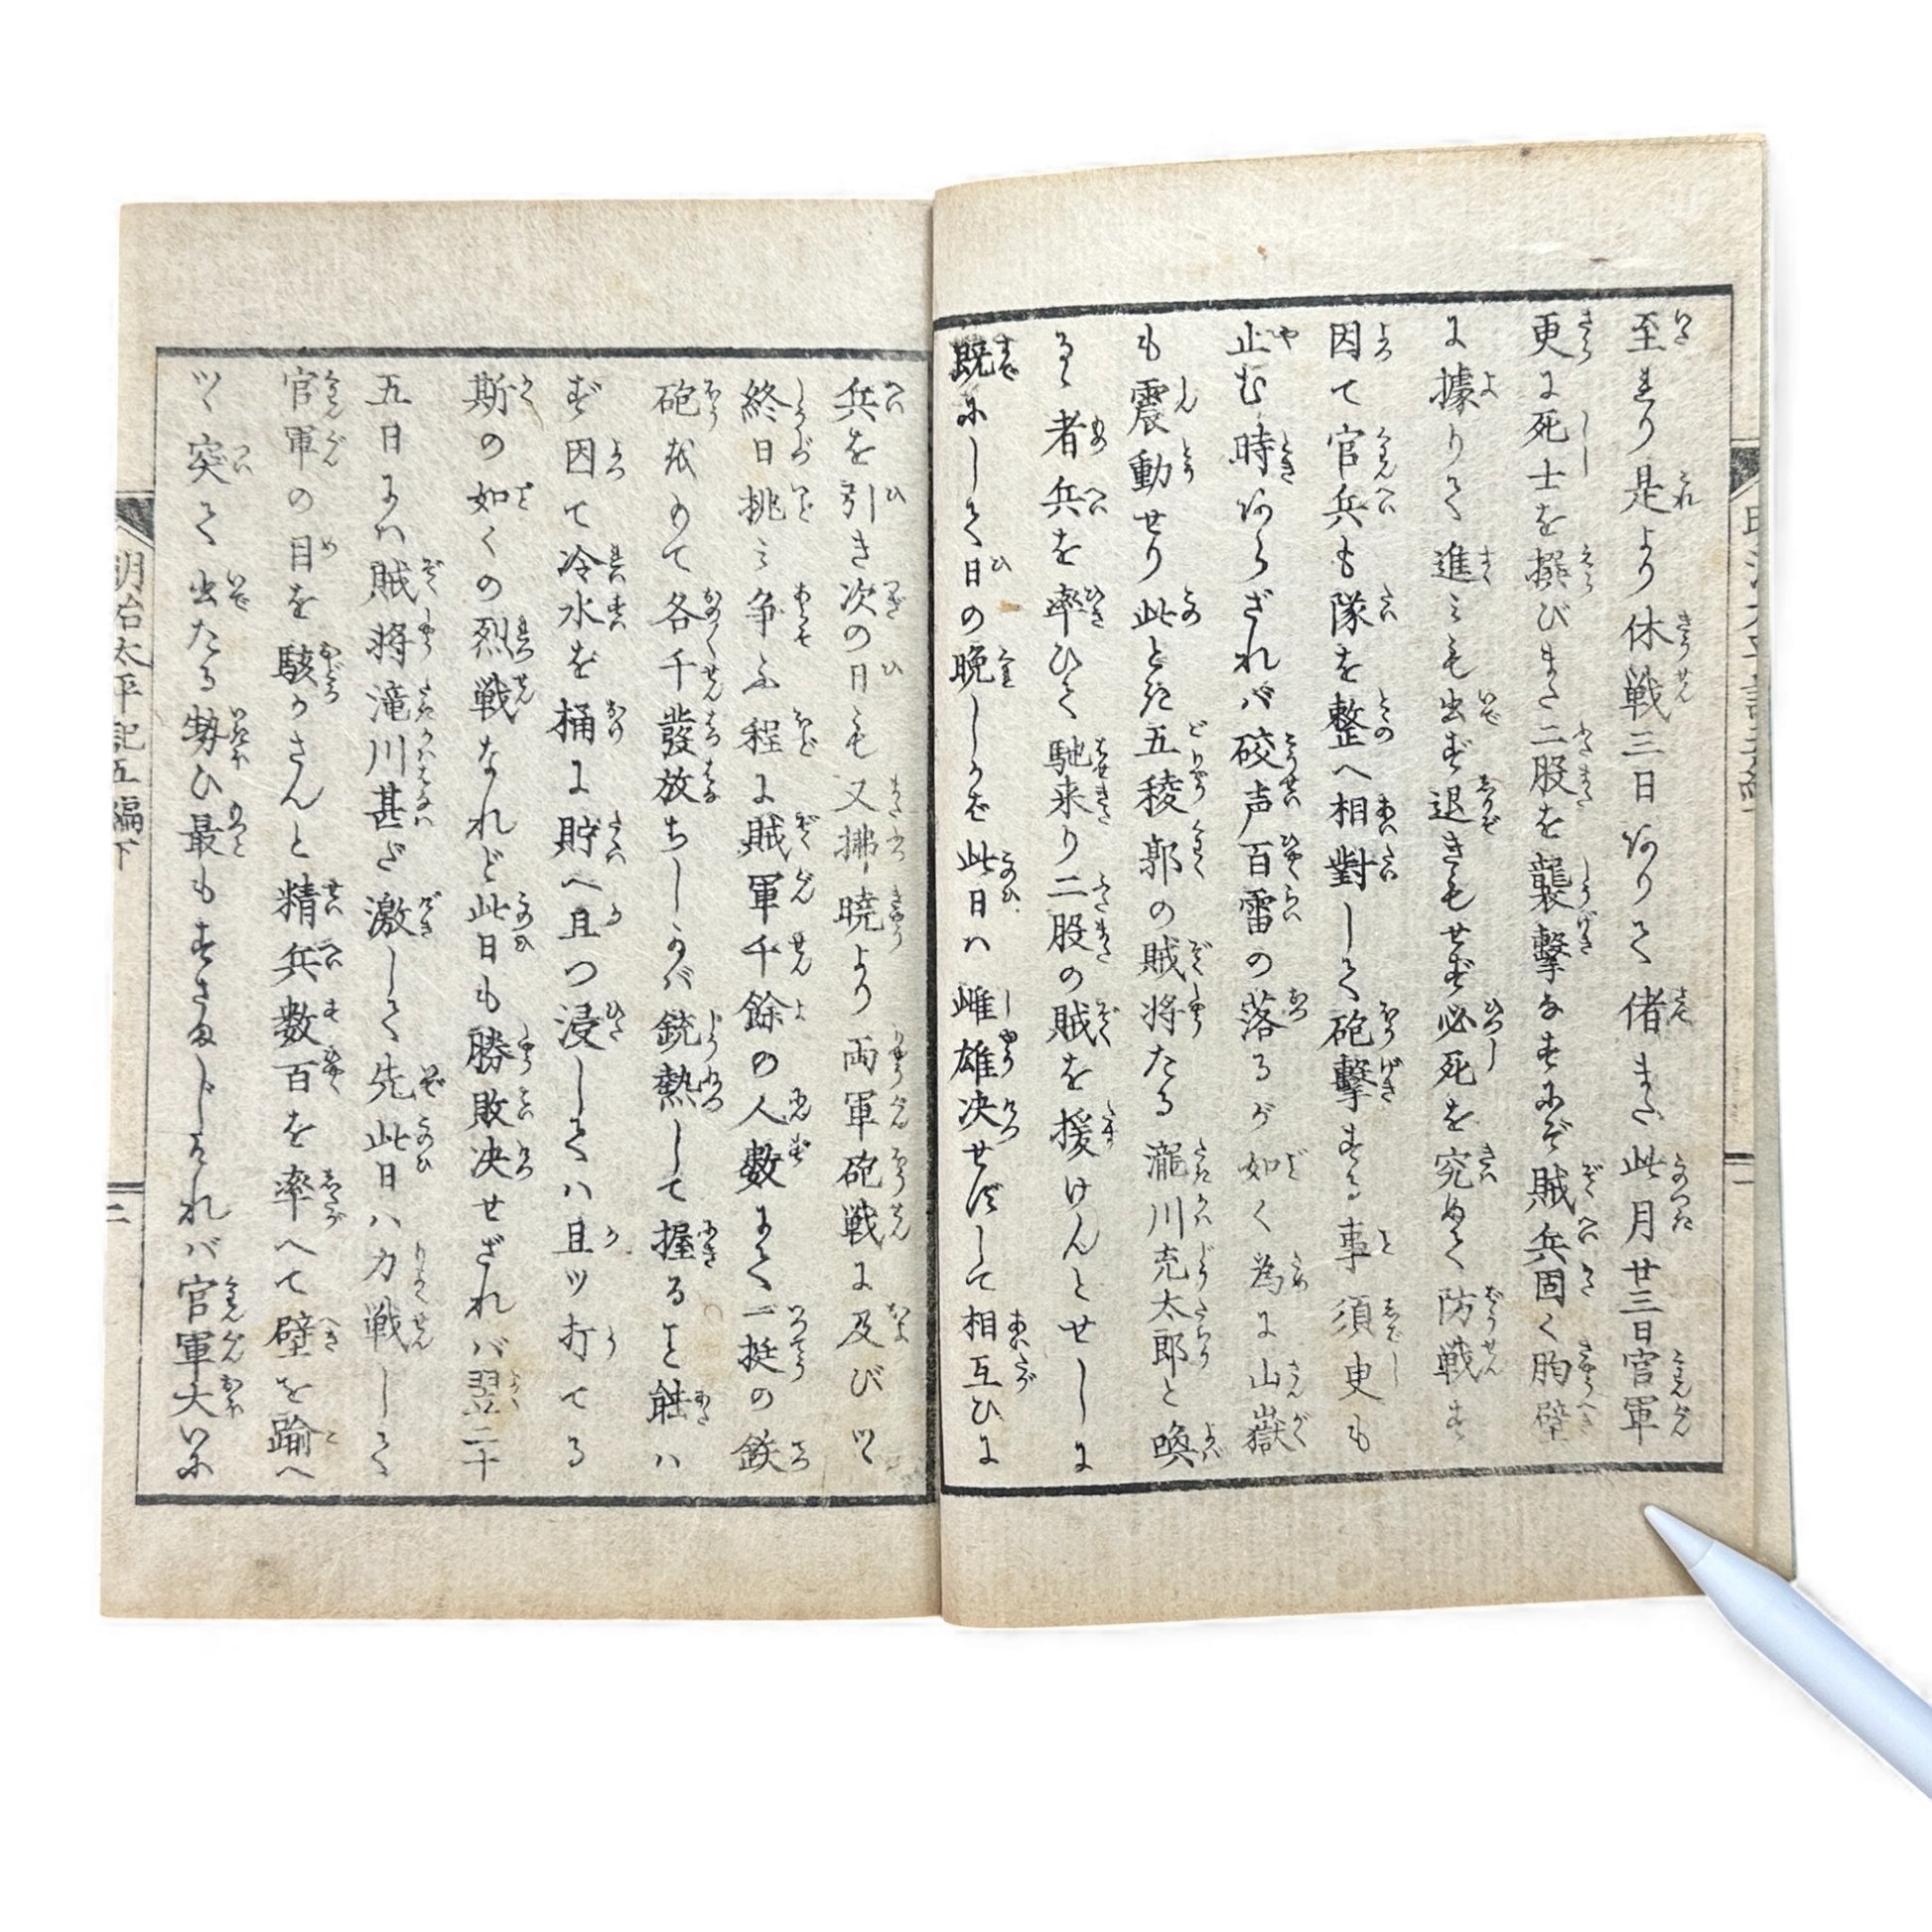 至れり是より休戦三日ありて偖また此月廿三日官軍
更に死士を撰びまた二股を襲撃なすにぞ賊兵固く胸壁
に據りて進みも出ず退きもせず必死を究めて防戦す
因て官兵も隊を整へ相對して砲撃する事須臾も
止む時あらざれバ砲声百雷の落るが如く為に山嶽
も震動せり此とき五稜郭の賊将たる瀧川充太郎と喚
るゝ者兵を率ひて馳来り二股の賊を援けんとせしに
既にして日の晩しかば此日ハ雌雄决せずして相互ひに
兵を引き次の日も又拂暁より両軍砲戦に及びツヽ
終日挑み争ふ程に賊軍千餘の人數にて一挺の鉄
砲をもて各千發放ちしかバ銃熱して握ること能ハ
ず因て冷水を桶に貯へ且つ浸してハ且ツ打てる
斯の如くの烈戦なれど此日も勝敗决せざれバ翌二十
五日にハ賊将滝川甚だ激して先此日ハ力戦して
官軍の目を駭かさんと精兵数百を率へて壁を踰へ
ツヽ突て出たる勢ひ最もすさまじけれバ官軍大いに
明治太平記五編下
二